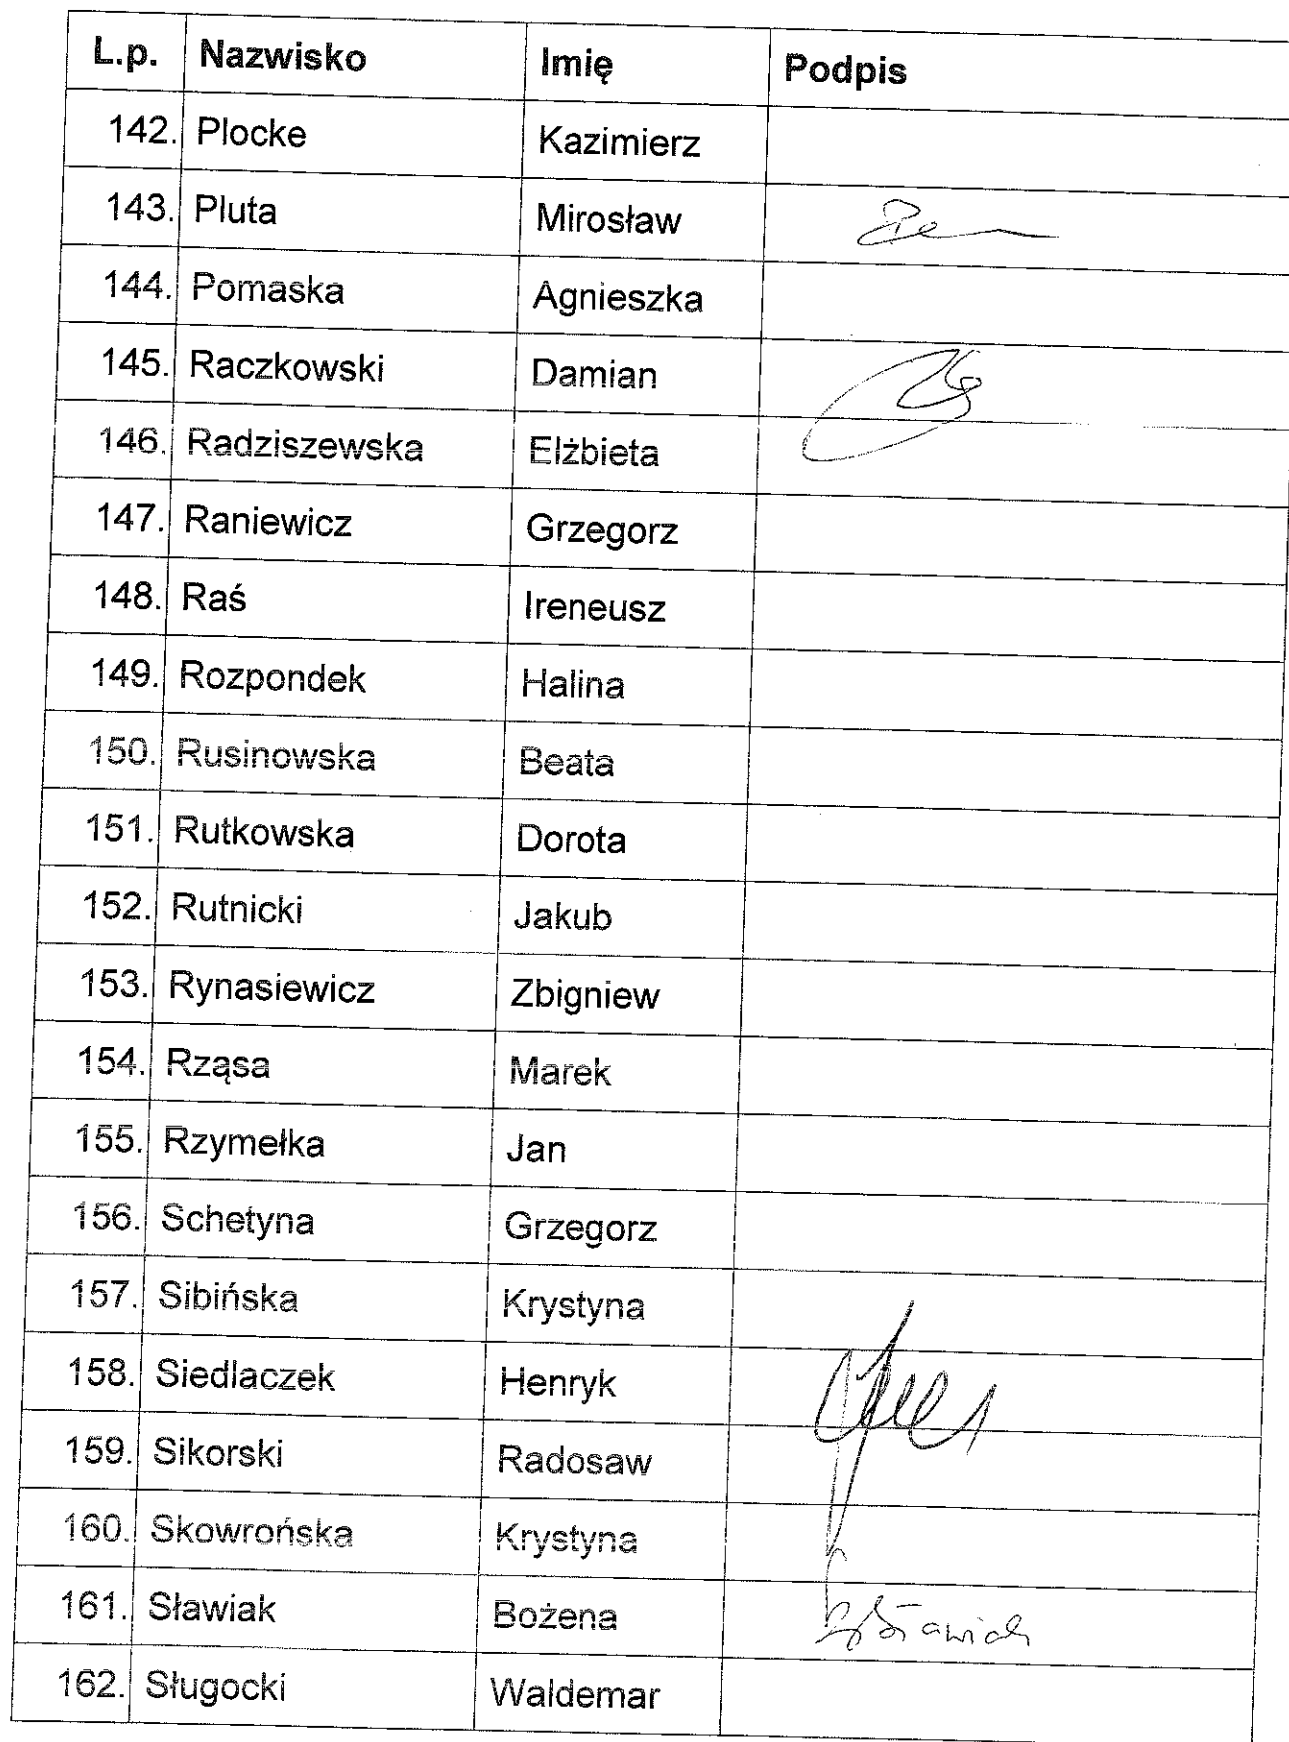 L.p. Nazwisko Imię Podpis
142. Plocke Kazimierz
143. Pluta Mirosław
144. Pomaska Agnieszka
145. Raczkowski Damian
146. Radziszewska Elżbieta
147. Raniewicz Grzegorz
148. Raś Ireneusz
149. Rozpondek Halina
150. Rusinowska Beata
151. Rutkowska Dorota
152. Rutnicki Jakub
153. Rynasiewicz Zbigniew
154. Rząsa Marek
155. Rzymełka Jan
156. Schetyna Grzegorz
157. Sibińska Krystyna
158. Siedlaczek Henryk
159. Sikorski Radosaw
160. Skowrońska Krystyna
161. Sławiak Bożena
162. Sługocki Waldemar